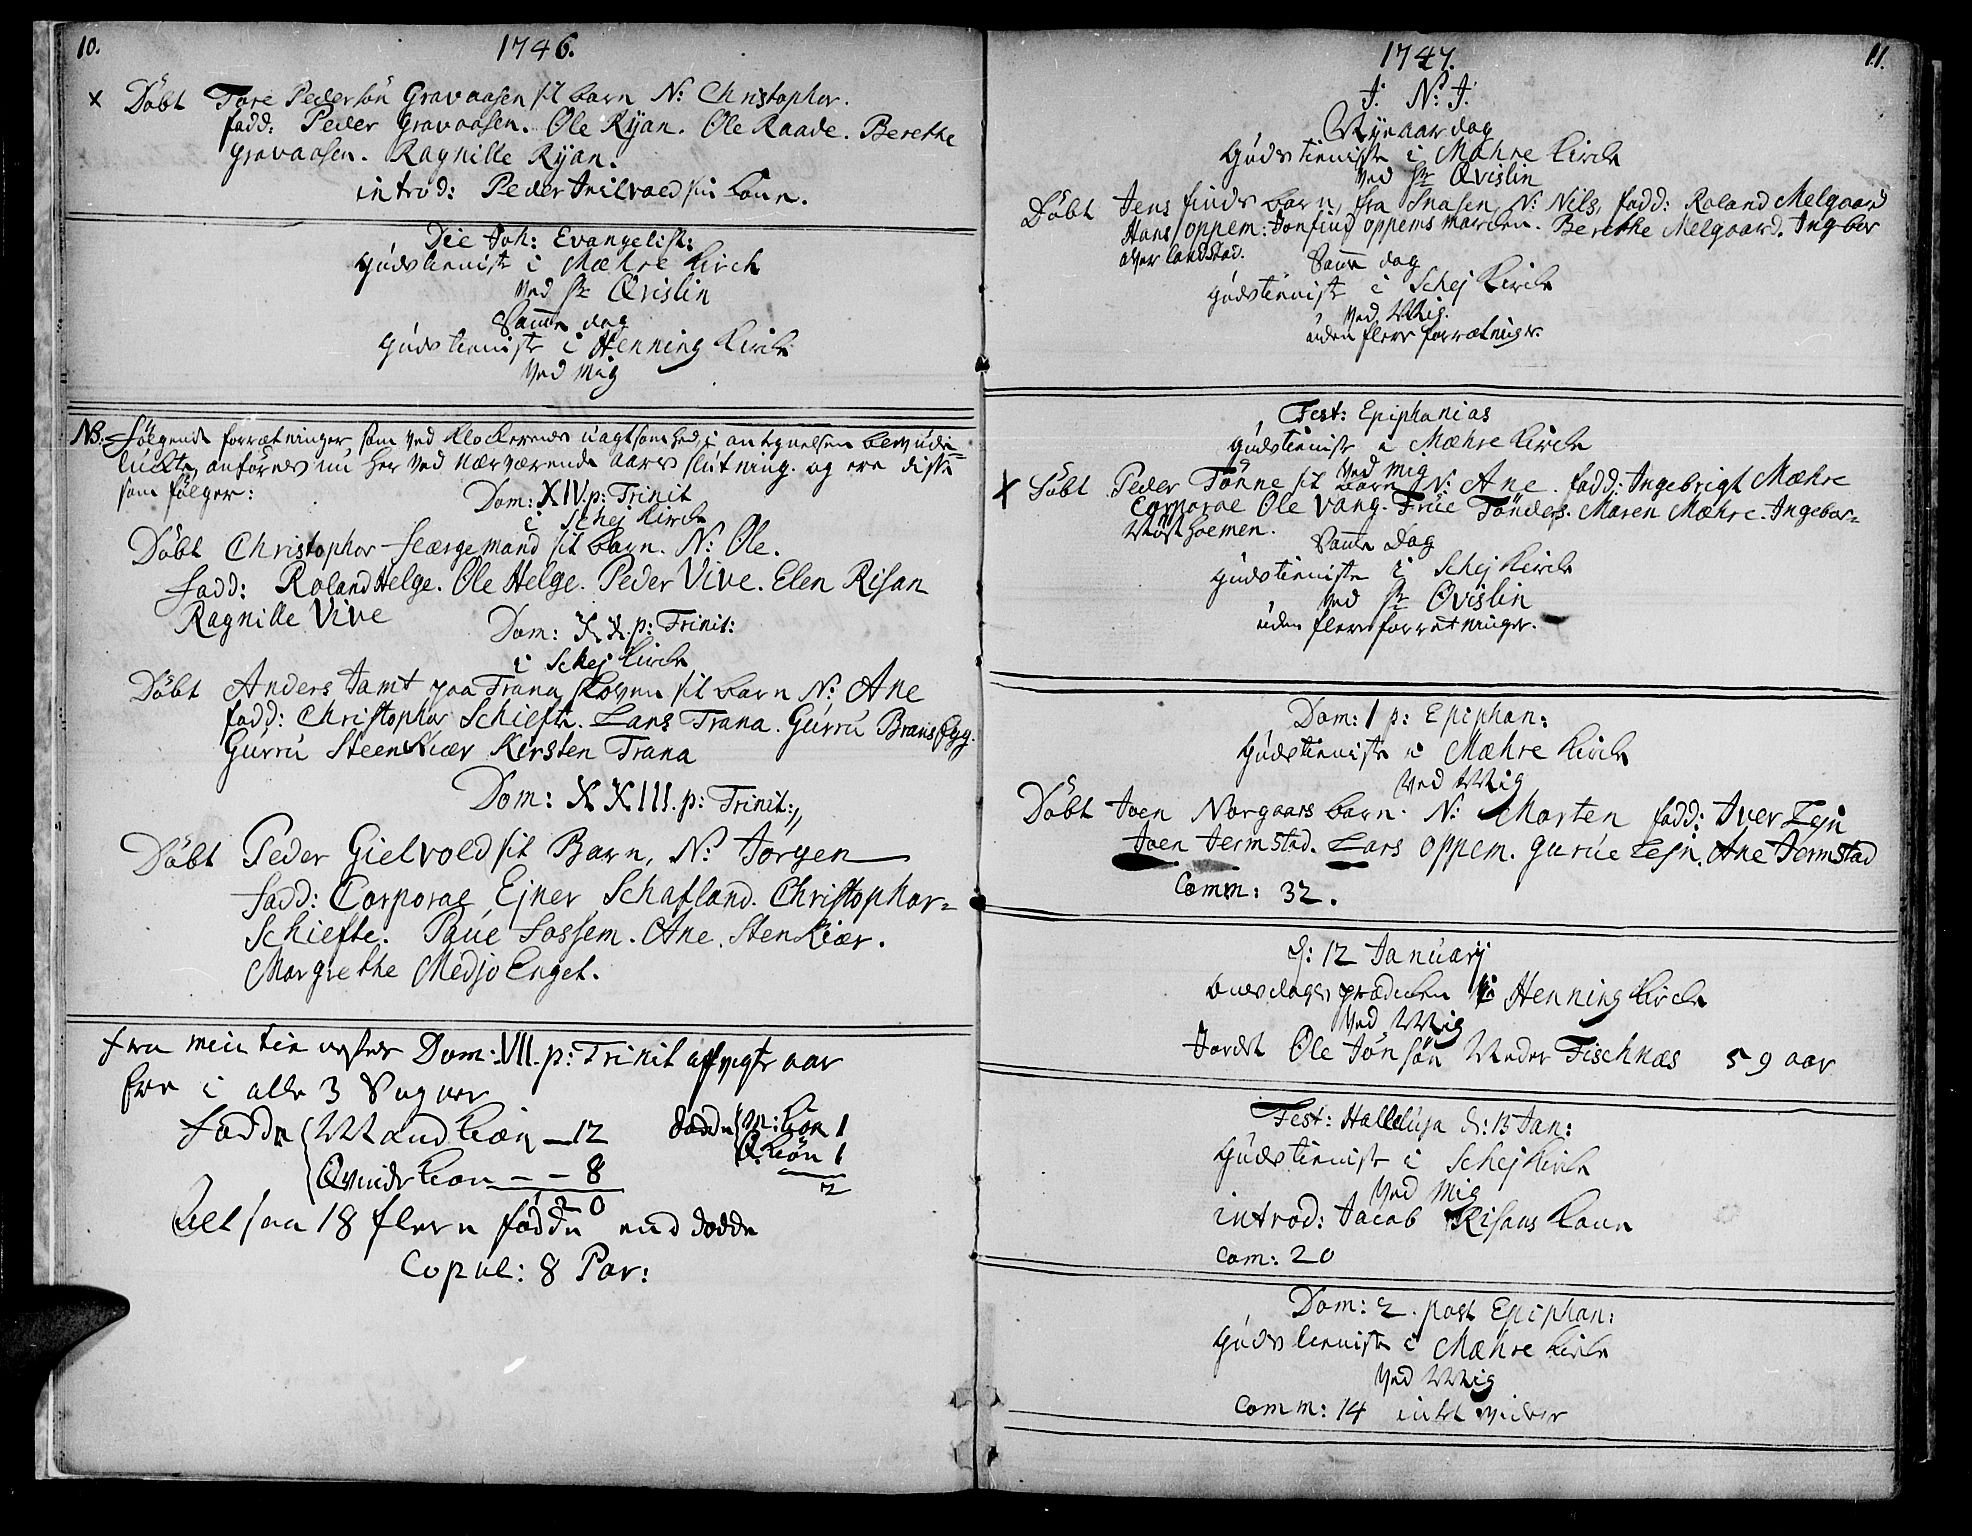 10.
1746.
x Döbt Tore Pedersön Gravaasen sit barn N: Christopher.
fadd: Peder Gravaasen. Ole Ryan. Ole Raade. Berethe
Gravaasen. Ragnille Ryan.
introd: Peder kone.
Die Joh: Evangelist:
Gudstieniste i Mæhre Kirch
ved Hr Qvislin
Samme dag
Gudstieniste i Henning Kirche
ved Mig
NB. Fölgende forrætninger som ved Klockerens uagtsomhed i antegnelsen
anföres nu her ved nærværende aars slutning. og ere disse
som fölger:
Dom: XIV. p: Trinit
i Schej Kirche
Döbt Christopher Færgemand sit barn. N: Ole.
fadd: Roland Helge. Ole Helge. Peder Vive. Elen Risan
Ragnille Vive
Dom: XX. p: Trinit:
i Schej Kirche
Döbt Anders Jamt paa Trana skoven sit barn N: Ane
fadd: Christopher Schiefte. Lars Trana. Gurru
Gurru Steenkiær Kirsten Trana
Dom: XXIII. p: Trinit:
Döbt Peder Gielvold sit Barn, N: Jörgen
fadd: Corporal Ejner Schafland. Christopher
Schiefte. Paul Fossem. Ane Stenkiær.
Margrethe Medjo Enget.
fra min tieniestes Dom: VII. p: Trinit afvigte aar
her i alle 3 Sogner
födde Mandkiön — 12 dödde M: kiön 1
Qvindekiön — — 8 Q. kiön 1
20 2
alt saa 18 flere födde end dödde
Copul: 8 Par:
11.
1747.
J. N: J.
Nyeaarsdag
Gudstieniste i Mæhre Kirche
ved Hr Qvislin
Döbt Jens Finds barn, fra Snasen, N: Nils, fadd: Roland Melgaard
Hans Oppem: Jonfind Oppems Berethe Melgaard. Ingbor
Samme dag
Gudstieniste i Schej Kirche
ved Mig.
uden flere forrætninger.
Fest: Epiphanias
Gudstieniste i Mæhre Kirche
ved Mig
x Döbt Peder Tönne sit barn N: Ane. fadd: Ingebrigt Mæhre
Corporal Ole Vang. Frue Tönders. Maren Mæhre. Ingebor
Samme Dag
Gudstieniste i Schej Kirche
ved Hr Qvislin
uden flere forretninger.
Dom: 1 p: Epiphan:
Gudstieniste i Mæhre Kirche
ved Mig
Döbt Joen Norgaars barn. N: Morten fadd: Iver Lejn
Joen Jermstad. Lars Oppem. Gurue Lejn. Ane Jermstad
Comm: 32.
d: 12 January
prædiken i Henning Kirche
ved Mig
Jordet Ole Jönsön Neder Fischnæs 59 aar
Fest: Halleluja d: 15 Jan:
Gudstieniste i Schej Kirche
ved Mig
introd: Jacob Risans kone
Com: 20
Dom: 2. post Epiphan:
Gudstieniste i Mæhre Kirche
ved Mig
Comm: 14 intet videre